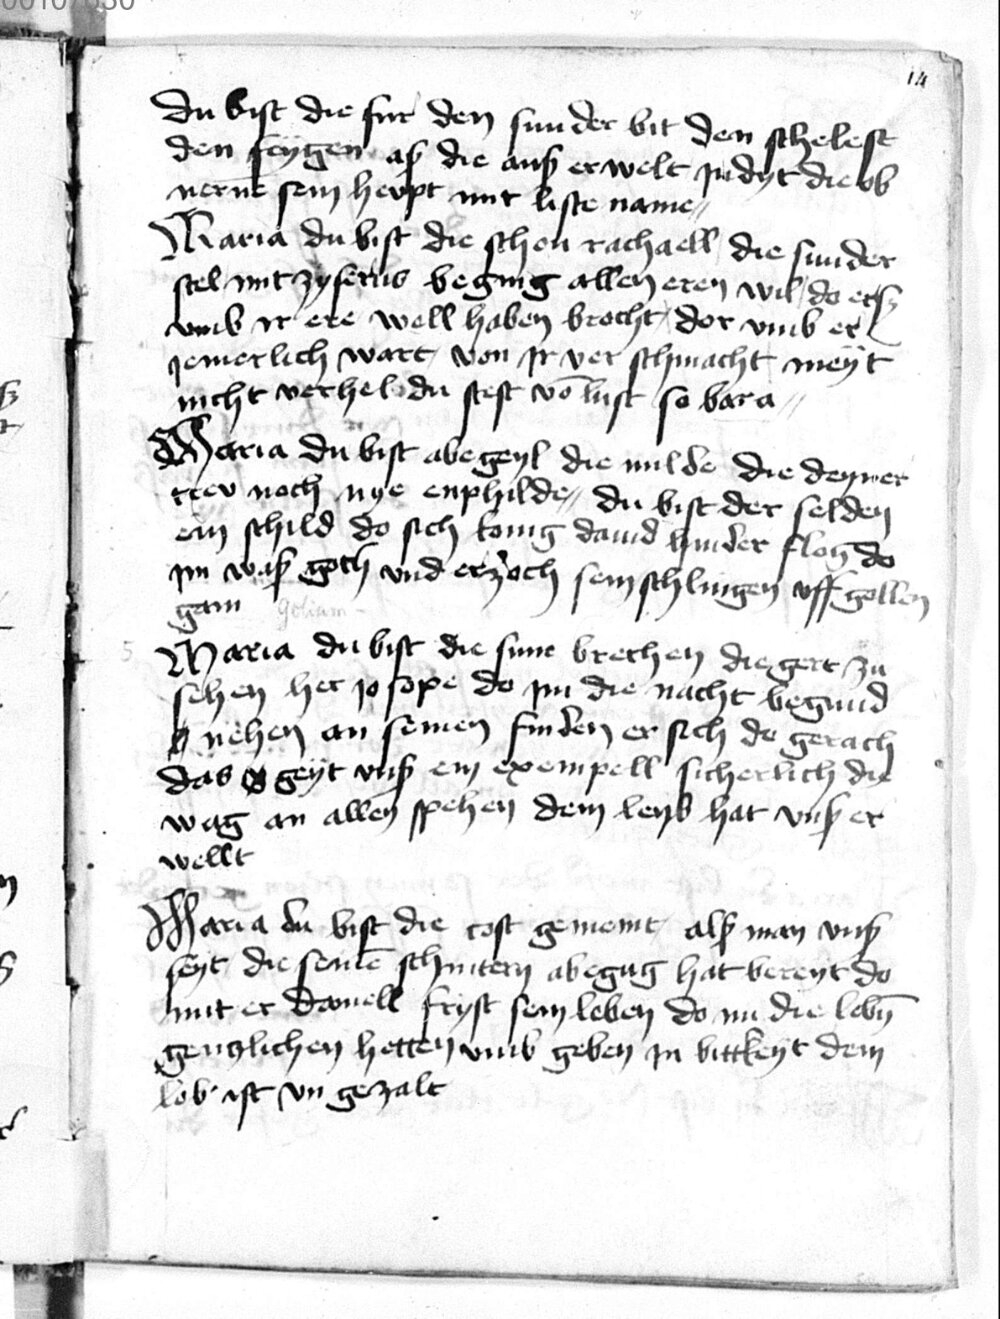 00107030
14
du bist die fur den sunder bit den schelest
den feygen aß die auß erwelt judyt die ob
nerne sein heupt mit liste name
Maria du bist die schon rachaell die sunder
stel mit zyferus beging allen eren wil do er
umb ir ere woll haben brocht dor umb er
jemerlich wart von jr ver schmacht meyt
nicht verhel du stest vo lust so bara
Maria du bist abegeyl die milde die deyner
trev noch nye enphilde du bist der selden
ein schild do sich konig david hinder flog do
jm waß goch und erzoch sein schlingen uff gollen
gam Golium
5 Maria du bist die sunn brechen die gert zu
sehen her josope do jm die nacht begund
nehen an seinen finden er sich do gerach
das geyt unß ein exempell sicherlich die
wag an allen spehen dein leyb hat unß er
wellt
Maria du bist die cost gemeint alß man unß
seyt die seine schnitern abegug hat bereyt do
mit er daniell fryst sein leben do im die lebn
genglichen hetten umb geben jn bittkeyt dein
lob ist un gezalt